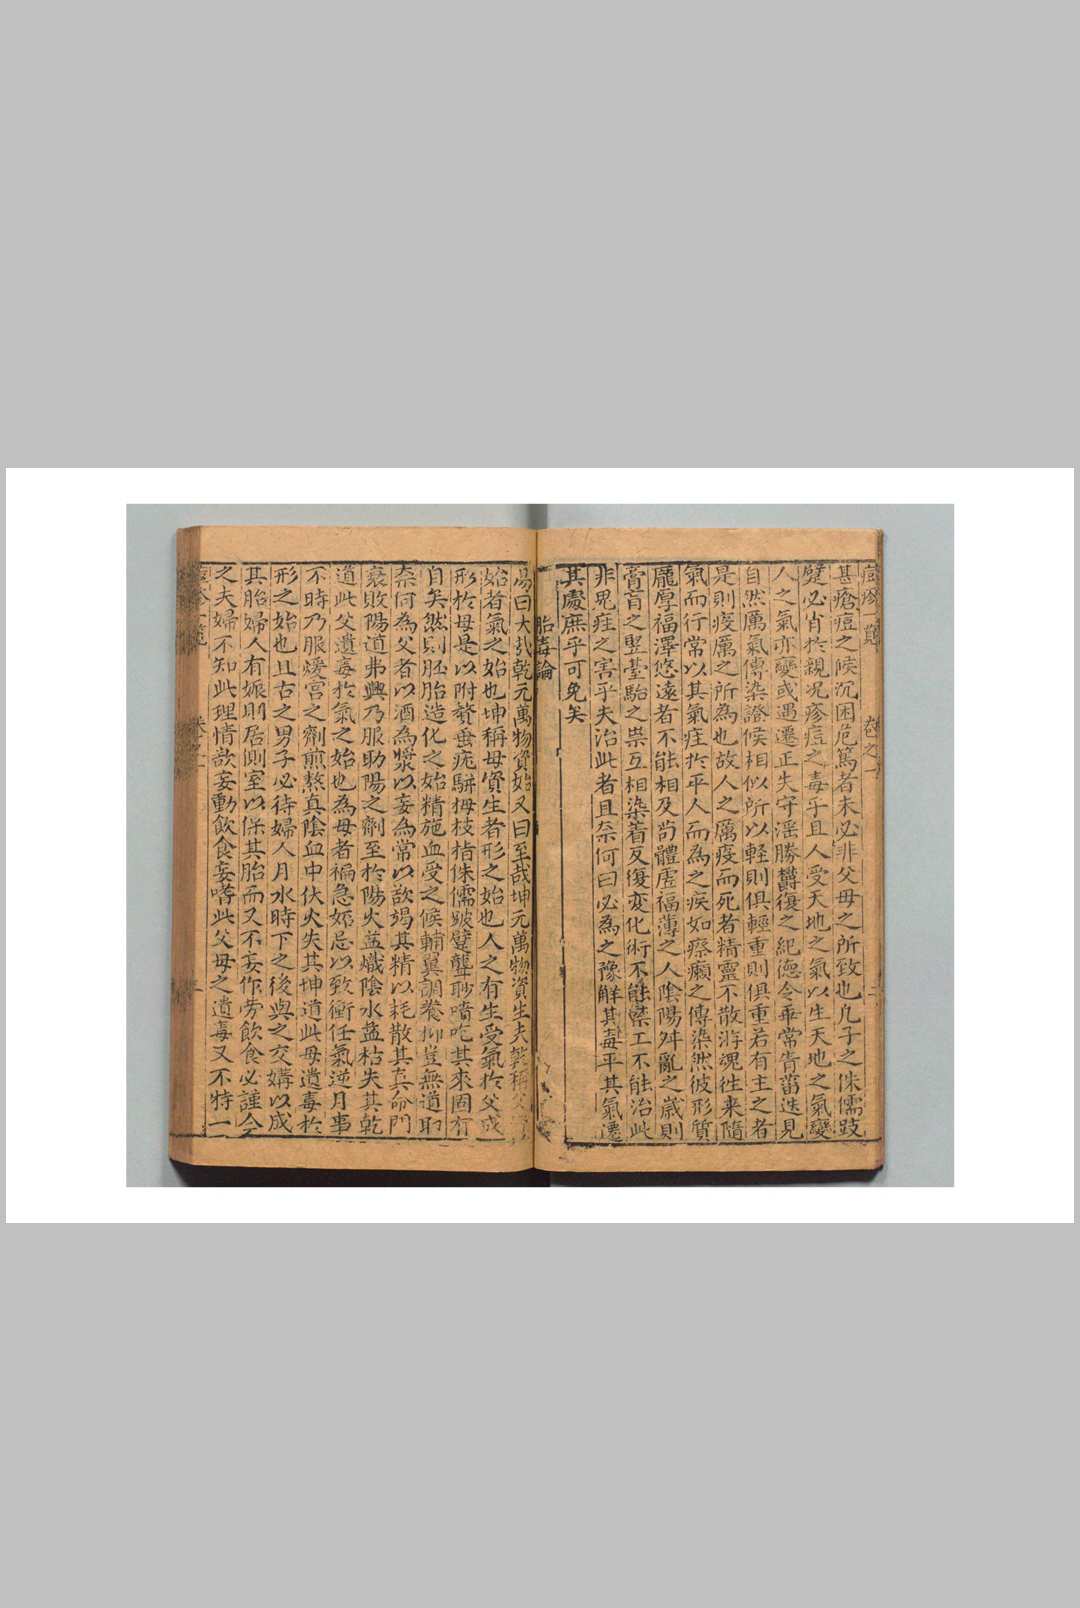 痘疹一覽 卷之一 二
甚瘡痘之候沉困危篤者未必非父母之所致也凡子之侏儒跂
躄必肖於親况疹痘之毒乎且人受天地之氣以生天地之氣變
人之氣亦變或遇遷正失守淫勝欝復之紀德令乖常眚菑迭見
自然厲氣傳染證候相似所以軽則俱輕重則俱重若有主之者
是則疫厲之所為也故人之厲疫而死者精靈不散游魂徃来隨
氣而行常以其氣疰於平人而為之疾如瘵癩之傳染然彼形質
厖厚福澤悠遠者不能相及尚體虛福薄之人陰陽舛亂之歲則
膏肓之竪臺駘之祟互相染着反復変化術不能禁工不能治此
非鬼疰之害乎夫治此者且奈何曰必為之豫觧其毒平其氣遷
其處庶乎可免矣
胎毒論
易曰大哉乾元萬物資始又曰至哉坤元萬物資生夫乾稱父資
始者氣之始也坤稱母資生者形之始也人之有生受氣於父成
形於母是以附贅垂疣駢拇枝指侏儒跛躄聾聆嘖吃其來固有
自矣然則胚胎造化之始精施血受之候輔翼調養抑豈無道耶
奈何為父者以酒為漿以妄為常以欲竭其精以耗散其真命門
衰敗陽道弗興乃服助陽之劑至於陽火益熾陰水益枯失其乾
道此父遺毒於氣之始也為母者褊急妬忌以致衝任氣逆月事
不時乃服煖宫之劑煎熬真陰血中伏火失其坤道此母遺毒於
形之始也且古之男子必待婦人月水時下之後與之交媾以成
其胎婦人有娠則居側室以保其胎而又不妄作劳飲食必謹今
之夫婦不知此理情欲妄動飲食妄嗜此父母之遺毒又不特一
卷之一